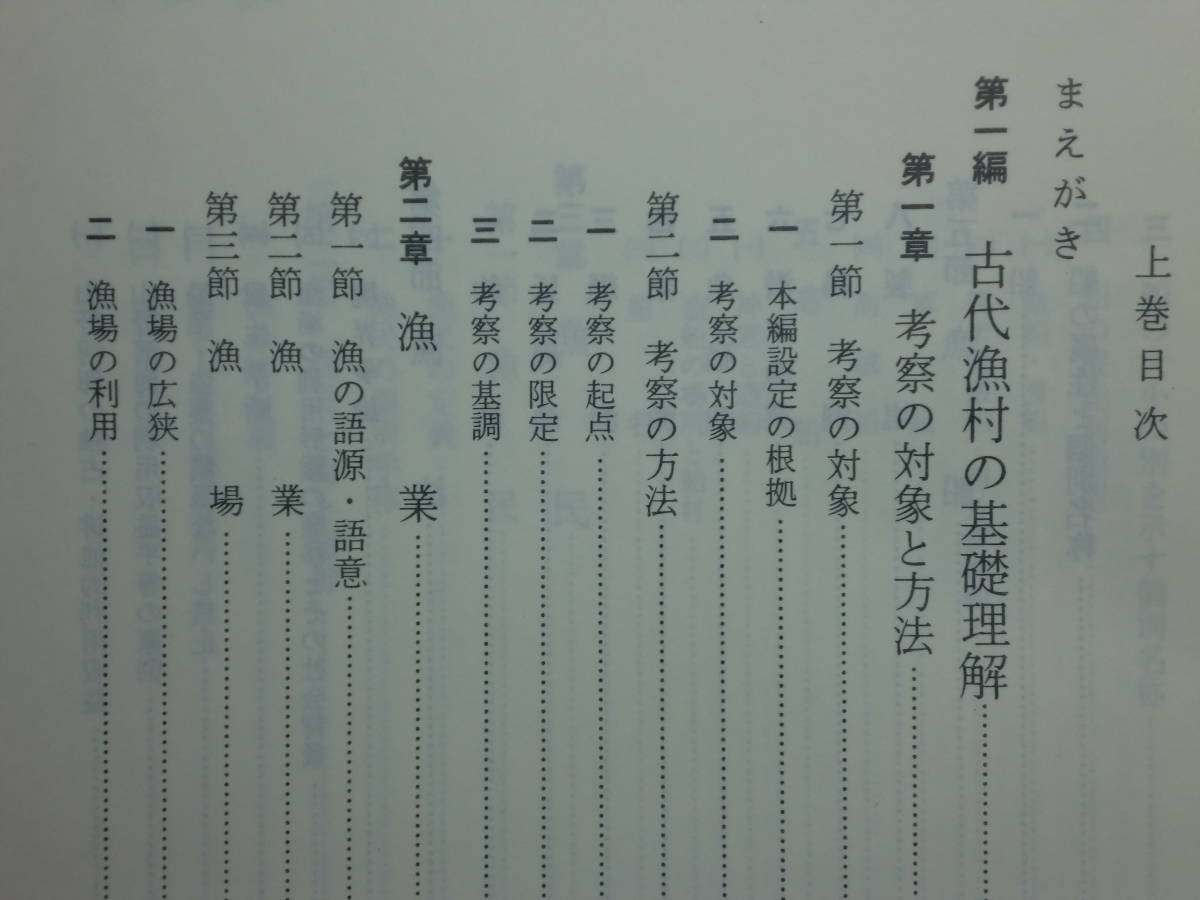 上巻目次
まえがき
第一編 古代漁村の基礎理解
第一章 考察の対象と方法
第一節 考察の対象
一 本編設定の根拠
二 考察の対象
第二節 考察の方法
一 考察の起点
二 考察の限定
三 考察の基調
第二章 漁業
第一節 漁の語源・語意
第二節 漁業
第三節 漁場
一 漁場の広狭
二 漁場の利用